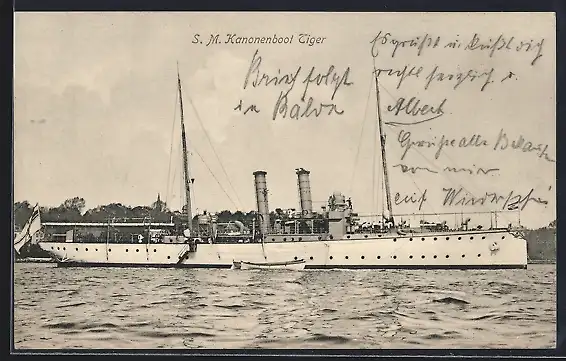 S. M. Kanonenboot Tiger
Es grüßt u. küßt dich
recht herzlich d.
Albert
Brief folgt
in Balde
Grüße alle Bekannten
von mir
auf Wiedersehn